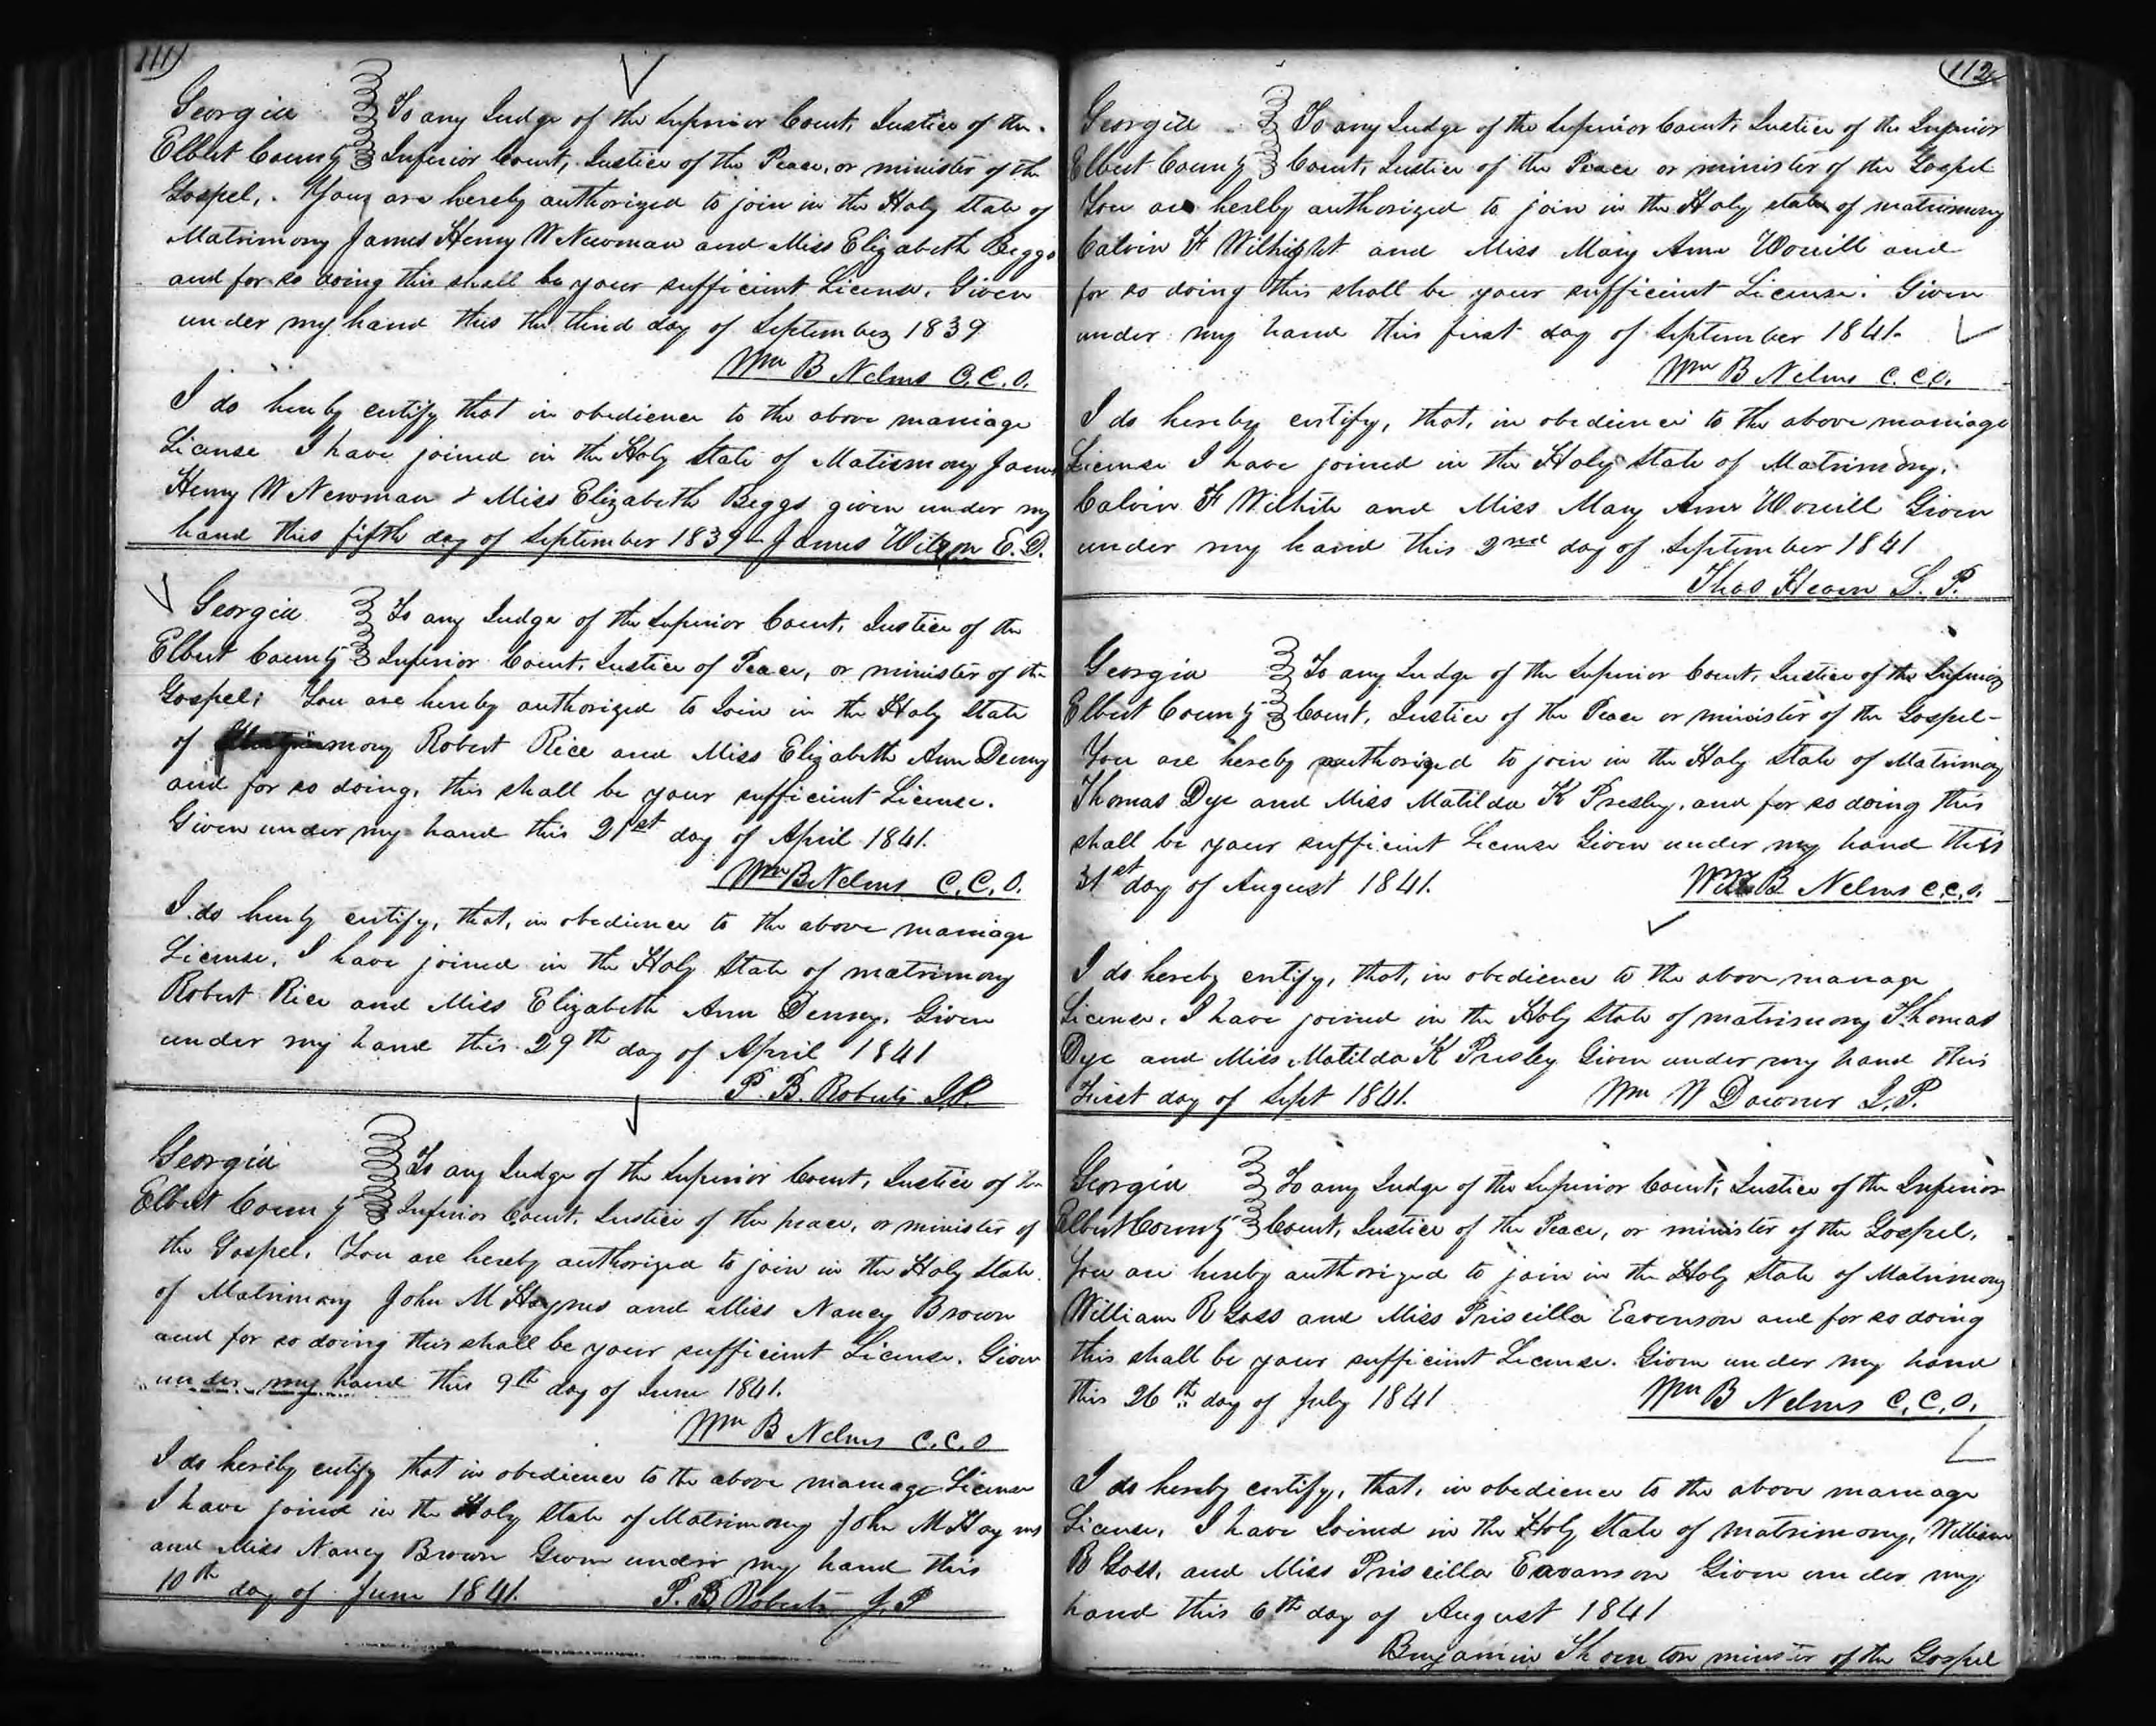 111
Georgia To any Judge of the Superior Court, Justice of the
Elbert County Inferior Court, Justice of the Peace, or minister of the
Gospel, You are hereby authorized to join in the Holy State of
Matrimony James Henry W Newman and Miss Elizabeth Beggs
and for so doing this shall be your sufficient License. Given
under my hand this the third day of September 1839
Wm B Nelms C.C.O.
I do hereby certify that in obedience to the above marriage
License I have joined in the Holy State of Matrimony James
Henry W Newman & Miss Elizabeth Beggs given under my
hand this fifth day of September 1839 James Wilson E.D.
Georgia To any Judge of the Superior Court, Justice of the
Elbert County Inferior Court, Justice of Peace, or minister of the
Gospel; You are hereby authorized to Join in the Holy State
of Matrimony Robert Rice and Miss Elizabeth Ann Denny
and for so doing, this shall be your sufficient License.
Given under my hand this 21st day of April 1841.
Wm B Nelms C.C.O.
I do hereby certify, that, in obedience to the above marriage
License, I have joined in the Holy State of matrimony
Robert Rice and Miss Elizabeth Ann Denny. Given
under my hand this 29th day of April 1841
P. B. Roberts J.P.
Georgia To any Judge of the Superior Court, Justice of the
Elbert County Inferior Court, Justice of the peace, or minister of
the Gospel. You are hereby authorized to join in the Holy State
of Matrimony John M Haynes and Miss Nancy Brown
and for so doing this shall be your sufficient License. Given
under my hand this 9th day of June 1841.
Wm B Nelms C.C.O
I do hereby certify that in obedience to the above marriage License
I have joined in the Holy State of Matrimony John M Haynes
and Miss Nancy Brown Given under my hand this
10th day of June 1841. P. B Roberts J. P
112
Georgia To any Judge of the Superior Court, Justice of the Inferior
Elbert County Court, Justice of the Peace or minister of the Gospel
You are hereby authorized to join in the Holy state of matrimony
Calvin F Wilhight and Miss Mary Ann Worrill and
for so doing this shall be your sufficient License. Given
under my hand this first day of September 1841.
Wm B Nelms C.C.O.
I do hereby certify, that, in obedience to the above marriage
License I have joined in the Holy State of Matrimony,
Calvin F Wilhite and Miss Mary Ann Worrill Given
under my hand this 2nd day of September 1841
Thos Hearn J. P.
Georgia To any Judge of the Superior Court, Justice of the Inferior
Elbert County Court, Justice of the Peace or minister of the Gospel-
You are hereby authorized to join in the Holy State of Matrimony
Thomas Dye and Miss Matilda K Presley, and for so doing this
shall be your sufficient License Given under my hand this
31st day of August 1841. Wm B Nelms C.C.O.
I do hereby certify, that, in obedience to the above marriage
License, I have joined in the Holy State of matrimony Thomas
Dye and Miss Matilda K Presley Given under my hand this
First day of Sept 1841. Wm W Downer J.P.
Georgia To any Judge of the Superior Court, Justice of the Inferior
Elbert County Court, Justice of the Peace, or minister of the Gospel.
You are hereby authorized to join in the Holy State of Matrimony
William R Goss and Miss Priscilla Eavenson and for so doing
this shall be your sufficient License. Given under my hand
this 26th day of July 1841 Wm B Nelms C.C.O.
I do hereby certify, that, in obedience to the above marriage
License, I have Joined in the Holy State of matrimony, William
R Goss, and Miss Priscilla Eavanson Given under my
hand this 6th day of August 1841
Benjamin Thornton minster of the Gospel